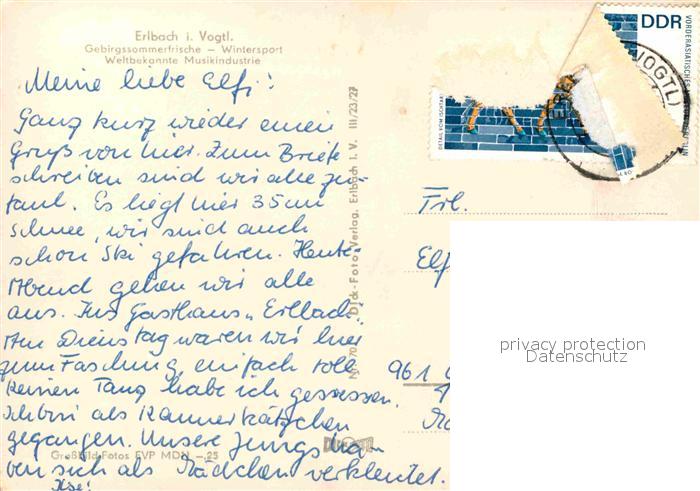 Erlbach i. Vogtl.
Gebirgssommerfrische – Wintersport
Weltbekannte Musikindustrie
Meine liebe Elfi!
Ganz kurz wieder einen
Gruß von hier. Zum Briefe
schreiben sind wir alle zu
faul. Es liegt hier 35 cm
Schnee, wir sind auch
schon Ski gefahren. Heute
Abend gehen wir alle
aus. Ins Gasthaus „Erlbach".
Am Dienstag waren wir hier
zum Fasching, einfach toll.
Keinen Tanz habe ich gesessen.
Ich bin als Kammerkätzchen
gegangen. Unsere Jungs ha-
ben sich als Mädchen verkleidet.
Großbild-Fotos EVP MDN –.25
Dick-Foto-Verlag, Erlbach i. V. III/23/27
DDR
VORDERASIATISCHES
DETAIL VOM ISCHTAR
VOGTL)
Frl.
Elf
961
privacy protection
Datenschutz